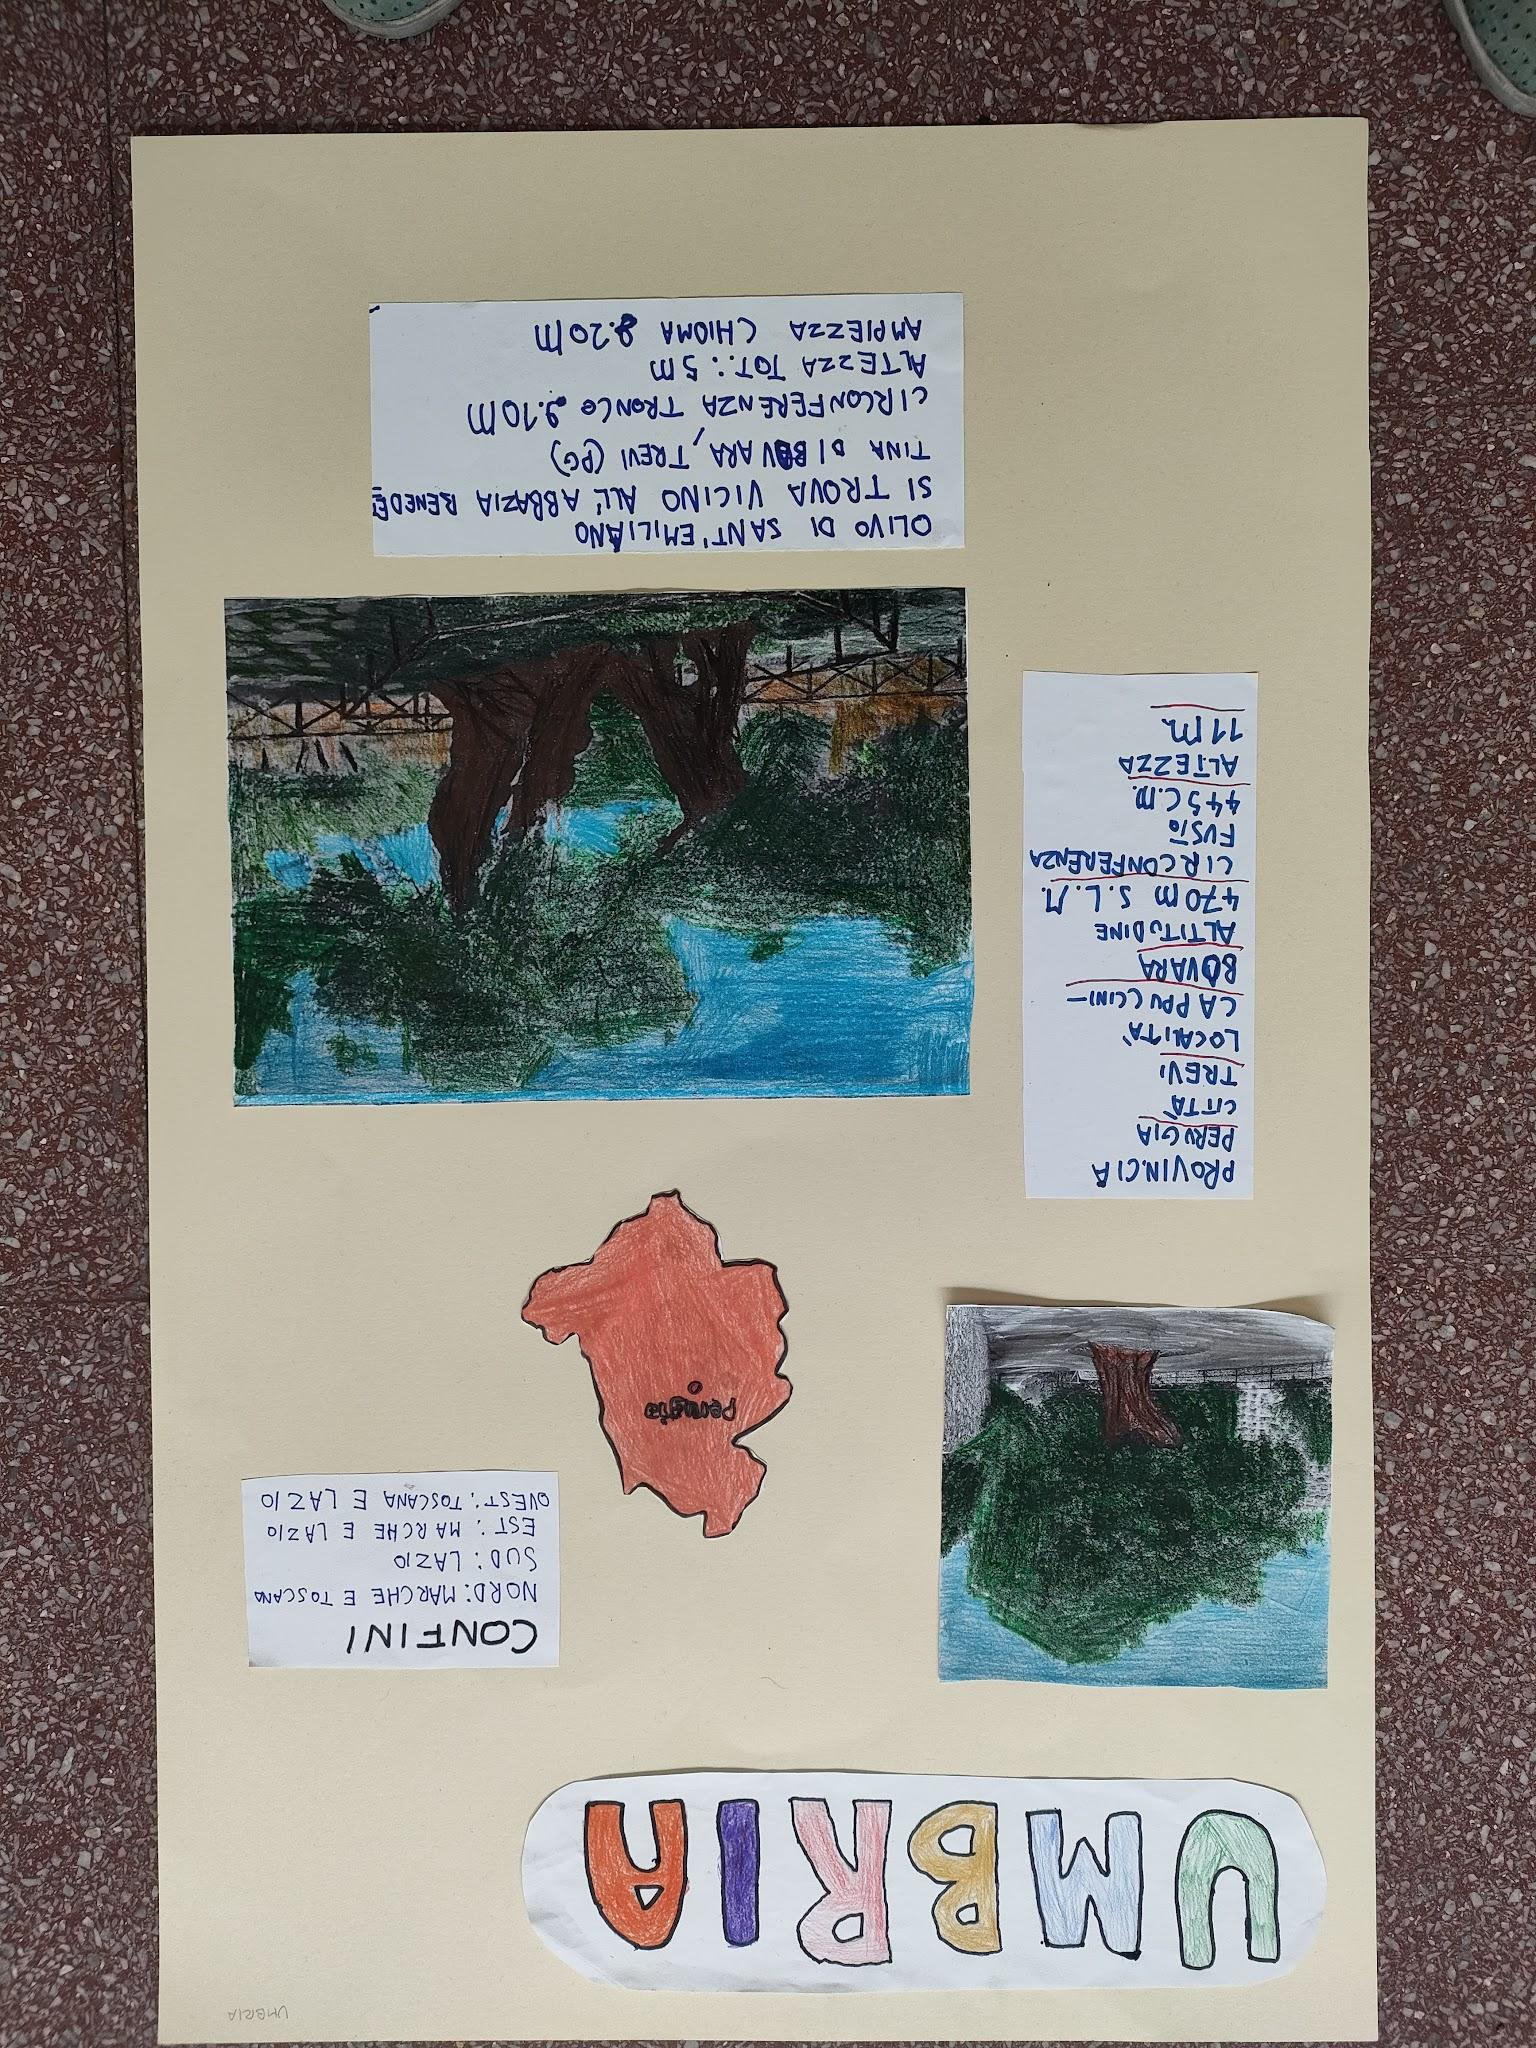 UMBRIA
UMBRIA
CONFINI
NORD: MARCHE E TOSCANA
SUD: LAZIO
EST: MARCHE E LAZIO
OVEST: TOSCANA E LAZIO
Perugia
PROVINCIA
PERUGIA
CITTÀ
TREVI
LOCALITÀ
CAPPUCCINI-
BOVARA
ALTITUDINE
470M S.L.M.
CIRCONFERENZA
FUSTO
445C.M.
ALTEZZA
11M.
OLIVO DI SANT'EMILIANO
SI TROVA VICINO ALL'ABBAZIA BENEDE
TINA DI BOVARA, TREVI (PG)
CIRCONFERENZA TRONCO 9.10M
ALTEZZA TOT.: 5M
AMPIEZZA CHIOMA 8.20M